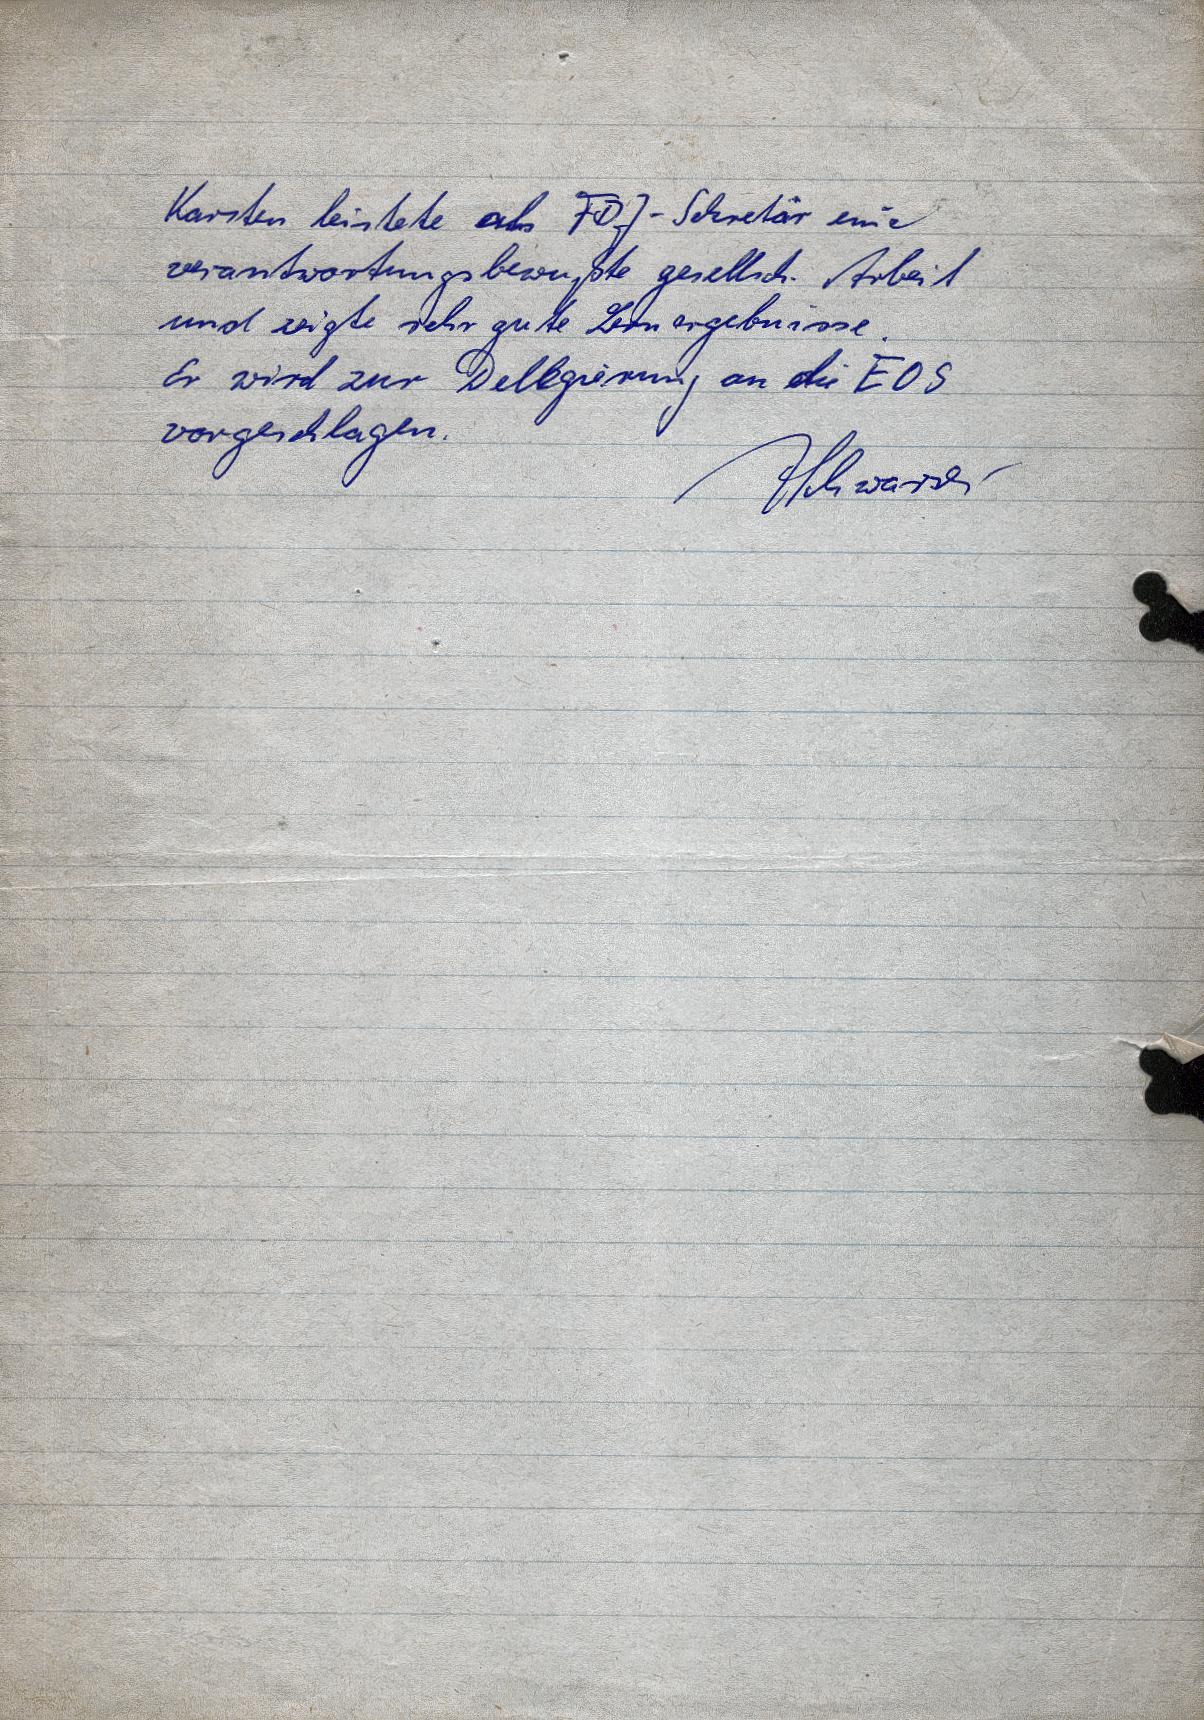 Karsten leistete als FDJ-Sekretär eine
verantwortungsbewußte gesellsch. Arbeit
und zeigte sehr gute Lernergebnisse.
Er wird zur Dellegierung an die EOS
vorgeschlagen.